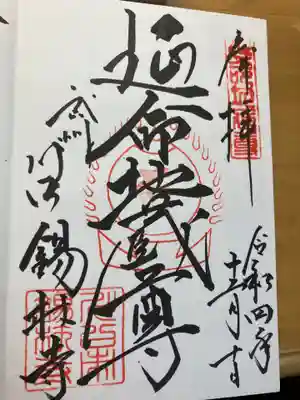 奉拝
令和四年
十二月十日
延命地蔵尊
武州
川口 錫杖寺